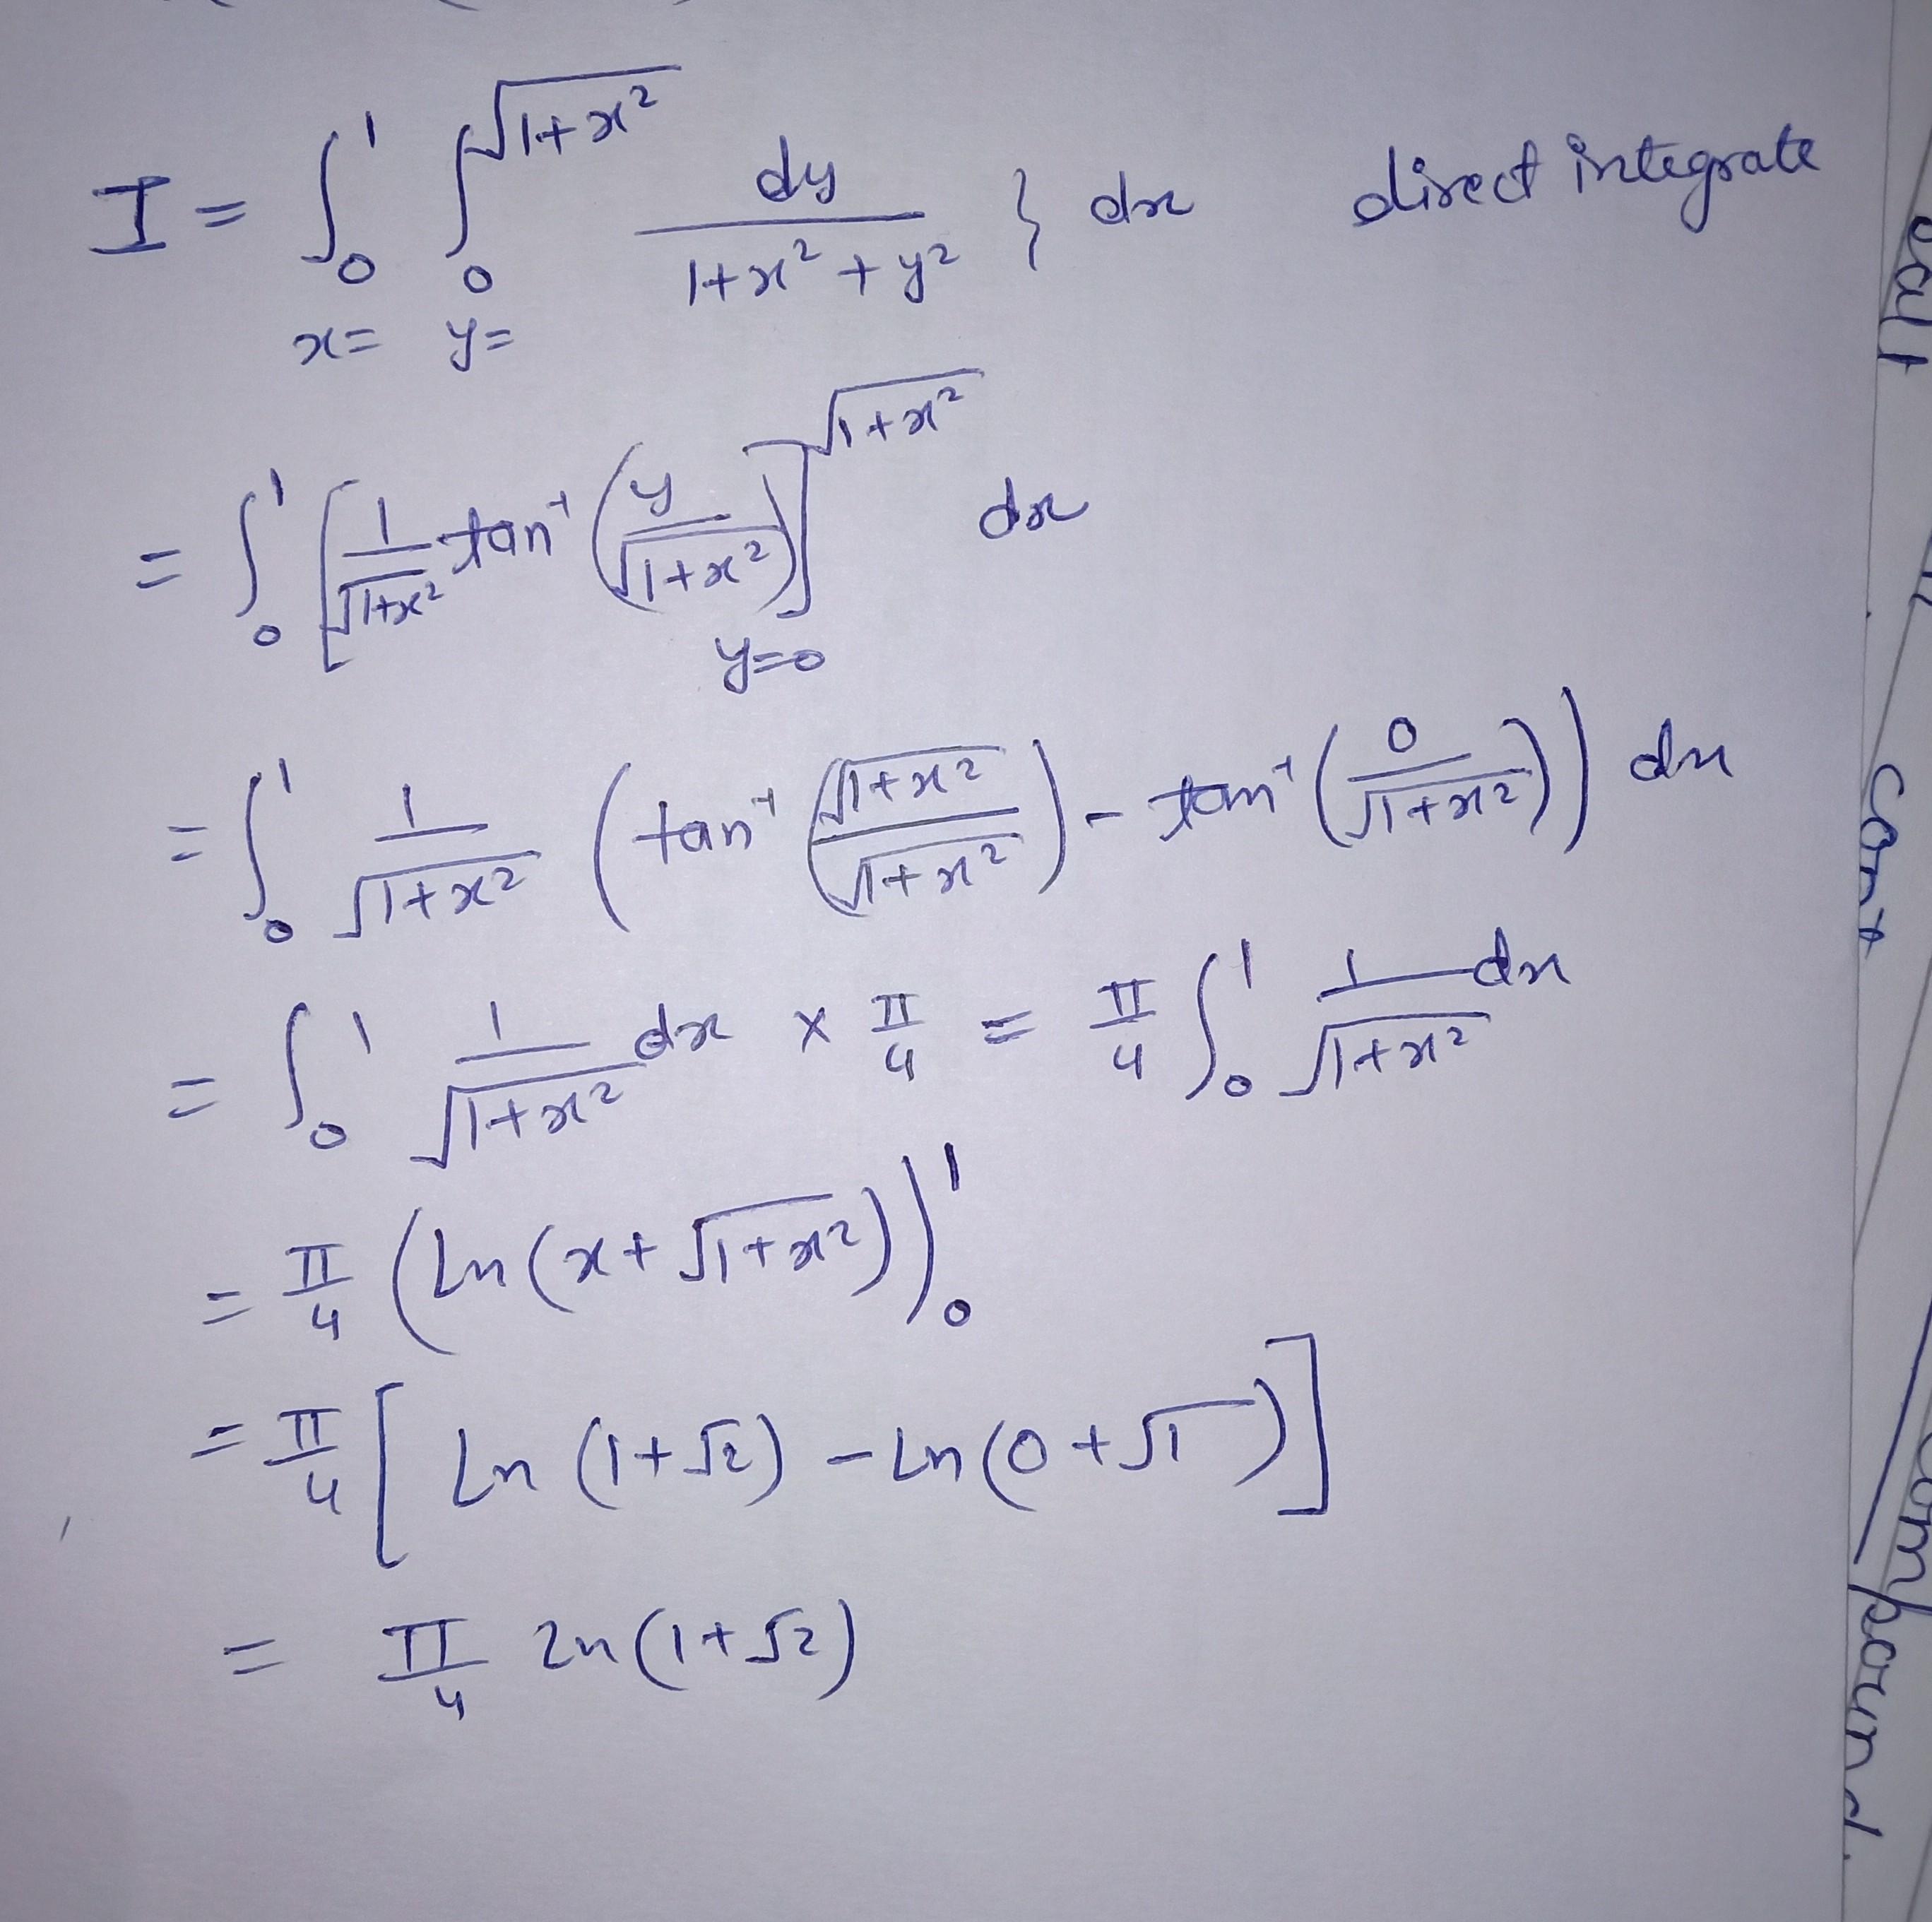 I = ∫₀¹ ∫₀^√(1+x²) dy/(1+x²+y²) } dx direct integrate
x= y=
= ∫₀¹ [1/√(1+x²) tan⁻¹(y/√(1+x²))]_{y=0}^{√(1+x²)} dx
= ∫₀¹ 1/√(1+x²) (tan⁻¹(√(1+x²)/√(1+x²)) - tan⁻¹(0/√(1+x²))) dx
= ∫₀¹ 1/√(1+x²) dx × π/4 = π/4 ∫₀¹ 1/√(1+x²) dx
= π/4 (ln(x+√(1+x²)))₀¹
= π/4 [ln(1+√2) - ln(0+√1)]
= π/4 ln(1+√2)
cont